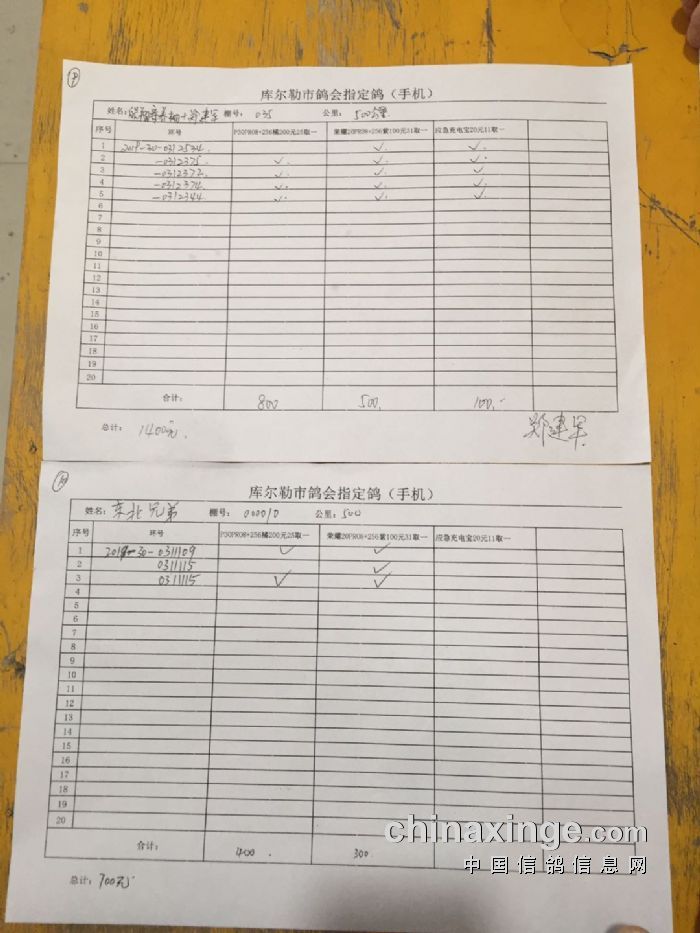 9
库尔勒市鸽会指定鸽（手机）
姓名： 棚号： 035 公里： 500公里
序号 环号 P30PRO8+256橘200元25取一 荣耀20PRO8+256紫100元31取一 应急充电宝20元11取一
1 2019-30-0312534 ✓ ✓
2 -0312375 ✓ ✓ ✓
3 -0312372 ✓ ✓ ✓
4 -0312374 ✓ ✓ ✓
5 -0312344 ✓ ✓ ✓
6
7
8
9
10
11
12
13
14
15
16
17
18
19
20
合计： 800 500 100
总计： 1400元 郑建军
10
库尔勒市鸽会指定鸽（手机）
姓名： 东北兄弟 棚号： 000010 公里： 500
序号 环号 P30PRO8+256橘200元25取一 荣耀20PRO8+256紫100元31取一 应急充电宝20元11取一
1 2019-30-0311109 ✓ ✓
2 0311115 ✓
3 0311115 ✓ ✓
4
5
6
7
8
9
10
11
12
13
14
15
16
17
18
19
20
合计： 400 300
总计： 700元
chinaxinge.com
中国信鸽信息网